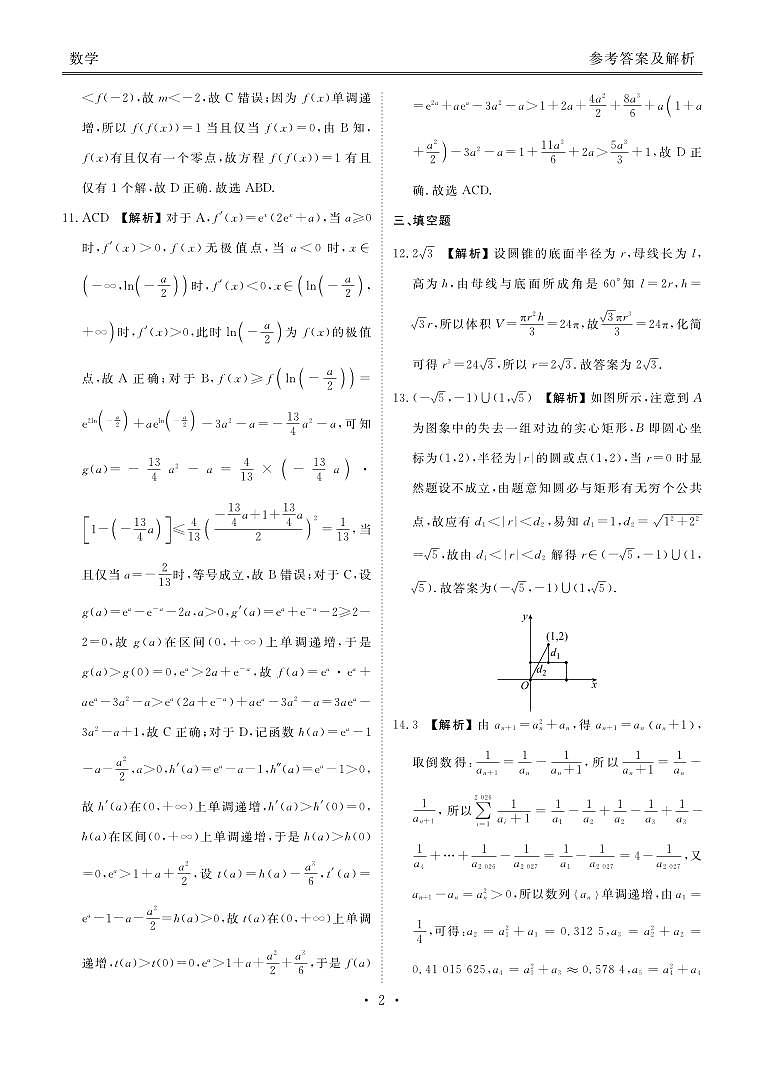 数学
参考答案及解析
<f(-2),故 m<-2,故 C 错误;因为 f(x)单调递
增,所以 f(f(x))=1 当且仅当 f(x)=0,由 B 知,
f(x)有且仅有一个零点,故方程 f(f(x))=1 有且
仅有 1 个解,故 D 正确.故选 ABD.
11. ACD 【解析】对于 A,f′(x)=eˣ(2eˣ+a),当 a≥0
时,f′(x)>0,f(x)无极值点,当 a<0 时,x∈
(-∞,ln(-a/2))时,f′(x)<0,x∈(ln(-a/2),
+∞)时,f′(x)>0,此时 ln(-a/2)为 f(x)的极值
点,故 A 正确;对于 B,f(x)≥f(ln(-a/2))=
e^{2ln(-a/2)}+ae^{ln(-a/2)}-3a²-a=-13/4a²-a,可知
g(a)=-13/4 a²-a=4/13×(-13/4 a)·
[1-(-13/4a)]≤4/13((-13/4a+1+13/4a)/2)²=1/13,当
且仅当 a=-2/13时,等号成立,故 B 错误;对于 C,设
g(a)=eᵃ-e⁻ᵃ-2a,a>0,g′(a)=eᵃ+e⁻ᵃ-2≥2-
2=0,故 g(a)在区间(0,+∞)上单调递增,于是
g(a)>g(0)=0,eᵃ>2a+e⁻ᵃ,故 f(a)=eᵃ·eᵃ+
aeᵃ-3a²-a>eᵃ(2a+e⁻ᵃ)+aeᵃ-3a²-a=3aeᵃ-
3a²-a+1,故 C 正确;对于 D,记函数 h(a)=eᵃ-1
-a-a²/2,a>0,h′(a)=eᵃ-a-1,h″(a)=eᵃ-1>0,
故 h′(a)在(0,+∞)上单调递增,h′(a)>h′(0)=0,
h(a)在区间(0,+∞)上单调递增,于是 h(a)>h(0)
=0,eᵃ>1+a+a²/2,设 t(a)=h(a)-a³/6,t′(a)=
eᵃ-1-a-a²/2=h(a)>0,故 t(a)在(0,+∞)上单调
递增,t(a)>t(0)=0,eᵃ>1+a+a²/2+a³/6,于是 f(a)
=e²ᵃ+aeᵃ-3a²-a>1+2a+4a²/2+8a³/6+a(1+a
+a²/2)-3a²-a=1+11a³/6+2a>5a³/3+1,故 D 正
确.故选 ACD.
三、填空题
12. 2√3 【解析】设圆锥的底面半径为 r,母线长为 l,
高为 h,由母线与底面所成角是 60°知 l=2r,h=
√3r,所以体积 V=πr²h/3=24π,故√3πr³/3=24π,化简
可得 r³=24√3,所以 r=2√3.故答案为 2√3.
13. (-√5,-1)∪(1,√5) 【解析】如图所示,注意到 A
为图象中的失去一组对边的实心矩形,B 即圆心坐
标为(1,2),半径为|r|的圆或点(1,2),当 r=0 时显
然题设不成立,由题意知圆必与矩形有无穷个公共
点,故应有 d₁<|r|<d₂,易知 d₁=1,d₂=√(1²+2²)
=√5,故由 d₁<|r|<d₂ 解得 r∈(-√5,-1)∪(1,
√5).故答案为(-√5,-1)∪(1,√5).
y
(1,2)
d₁
d₂
O
x
14. 3 【解析】由 aₙ₊₁=aₙ²+aₙ,得 aₙ₊₁=aₙ(aₙ+1),
取倒数得:1/aₙ₊₁=1/aₙ-1/(aₙ+1),所以1/(aₙ+1)=1/aₙ-
1/aₙ₊₁,所以∑_{i=1}^{2 026} 1/(aᵢ+1)=1/a₁-1/a₂+1/a₂-1/a₃+1/a₃-
1/a₄+…+1/a₂ ₀₂₆-1/a₂ ₀₂₇=1/a₁-1/a₂ ₀₂₇=4-1/a₂ ₀₂₇,又
aₙ₊₁-aₙ=aₙ²>0,所以数列{aₙ}单调递增,由 a₁=
1/4,可得:a₂=a₁²+a₁=0.312 5,a₃=a₂²+a₂=
0.41 015 625,a₄=a₃²+a₃≈0.578 4,a₅=a₄²+a₄
· 2 ·